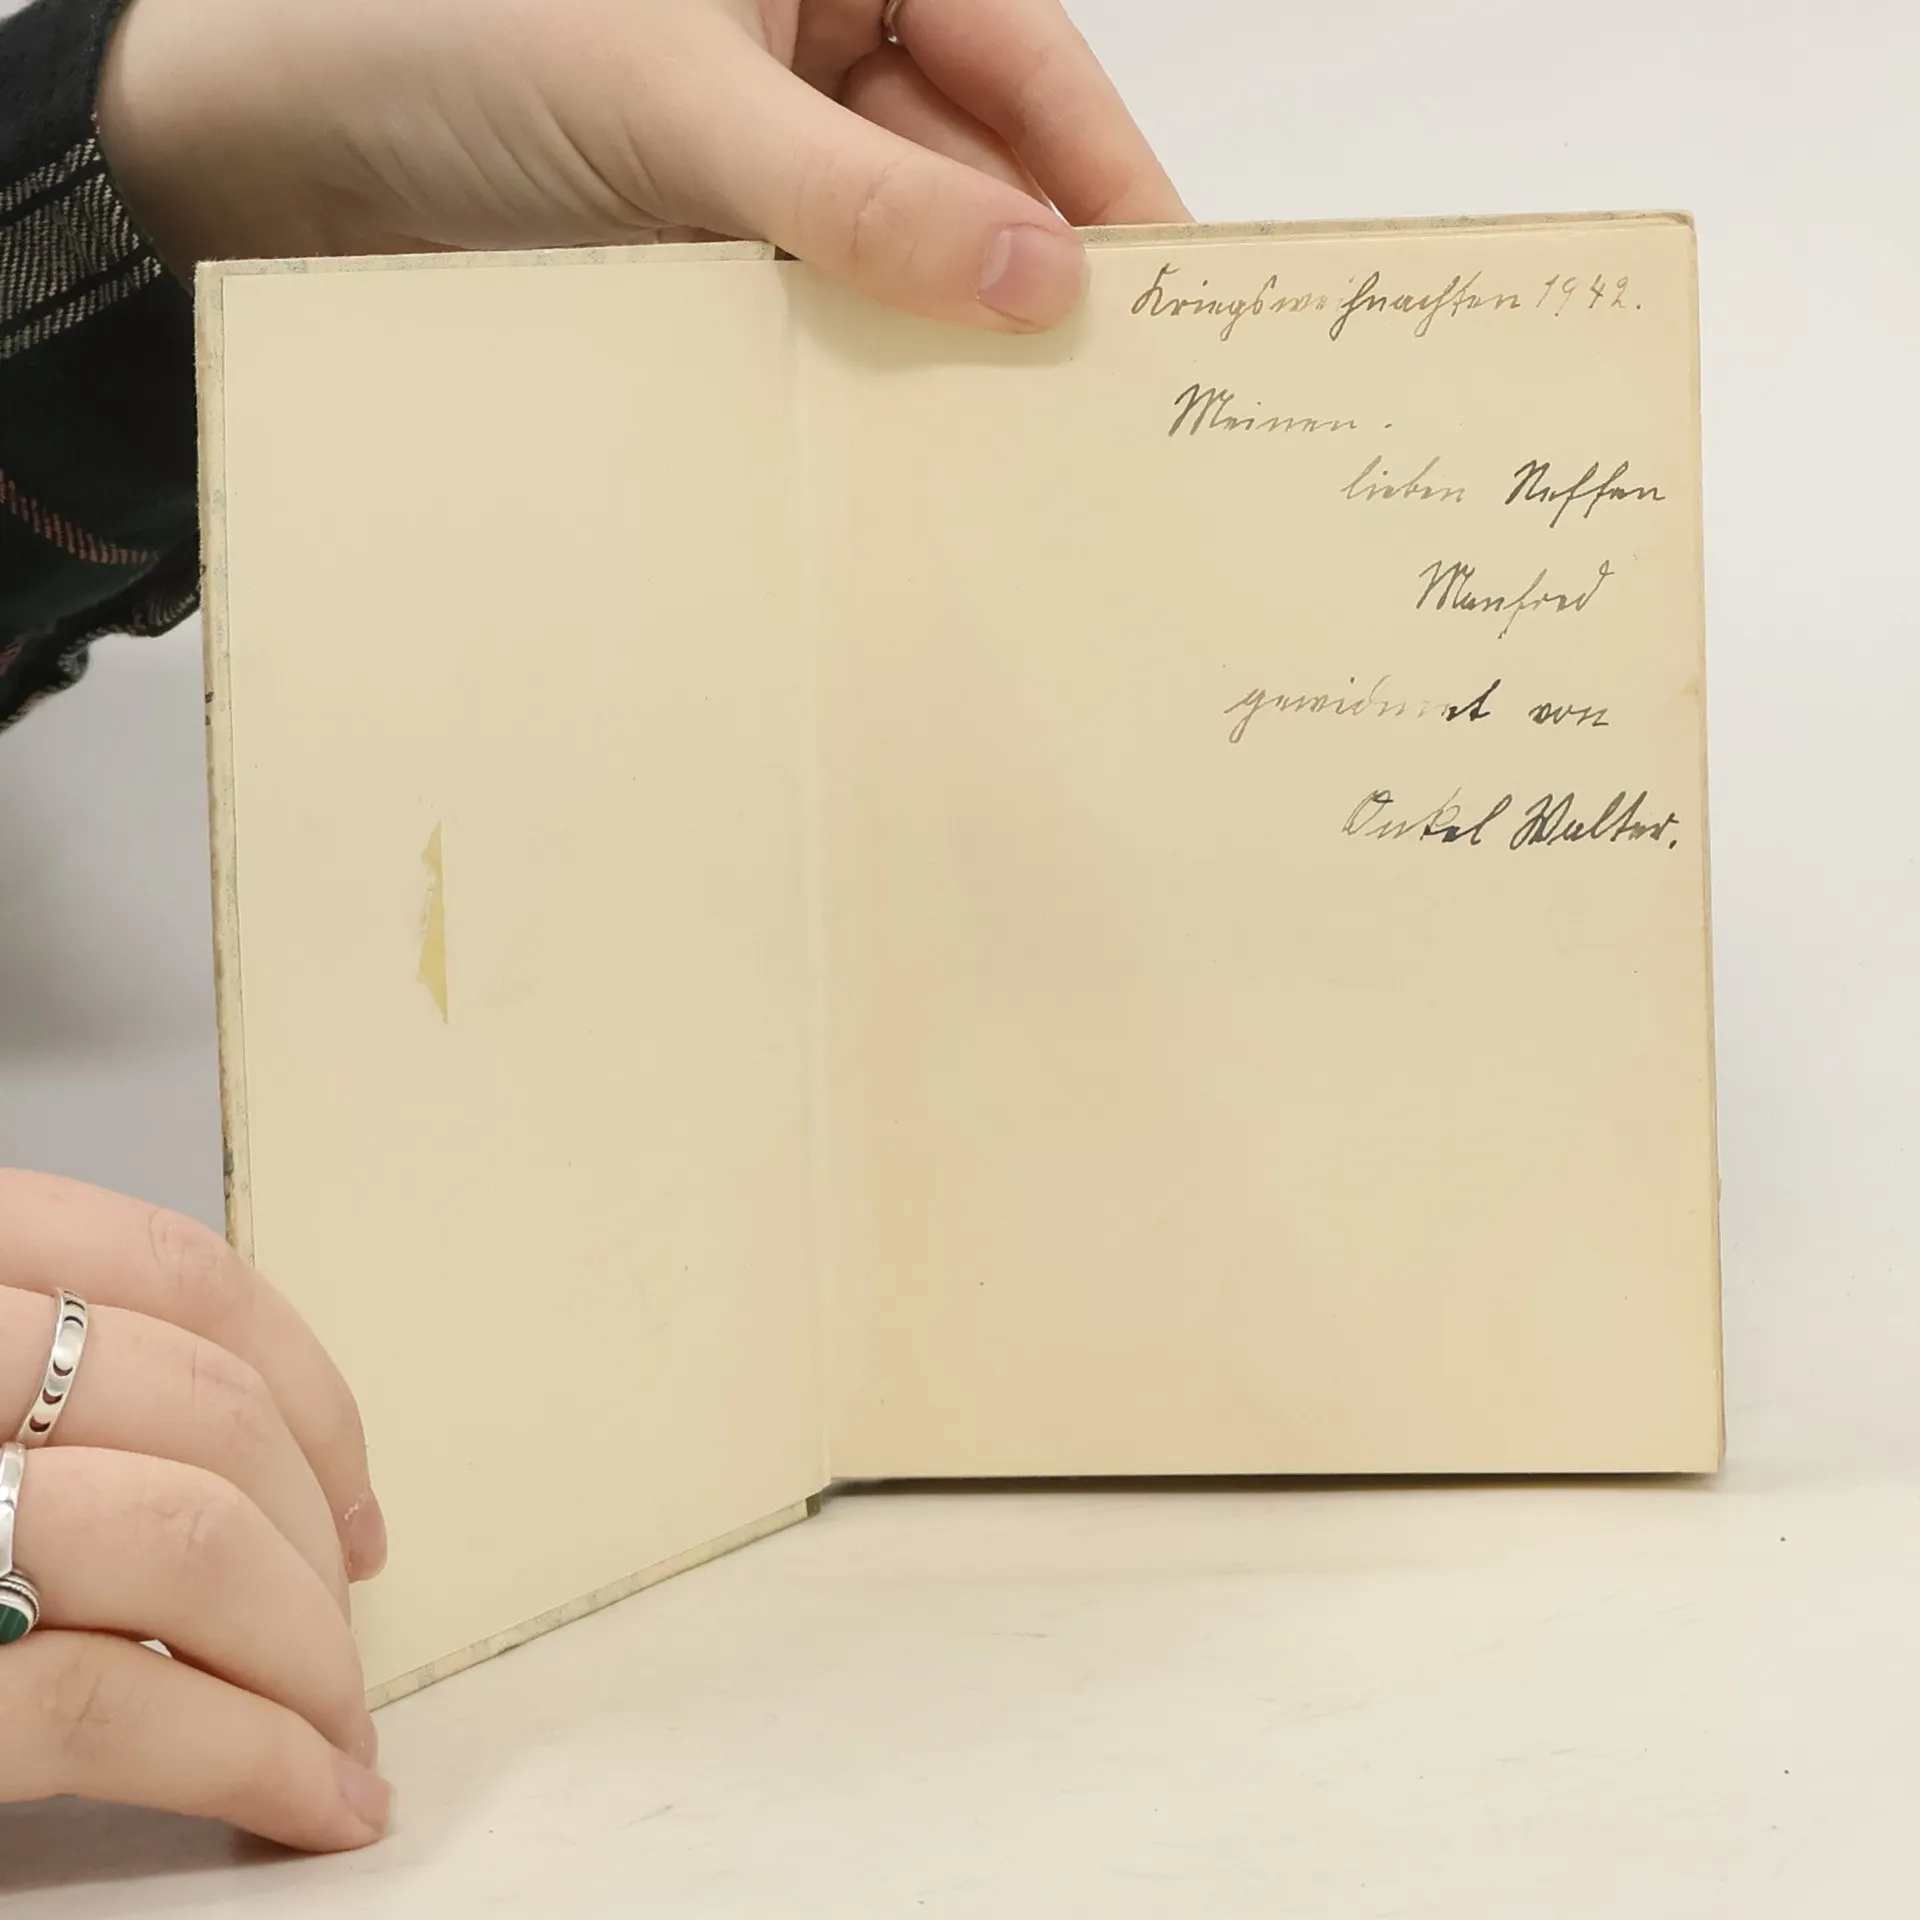 Kriegsweihnachten 1942.
Meinen.
lieben Neffen
Manfred
gewidmet von
Onkel Walter.